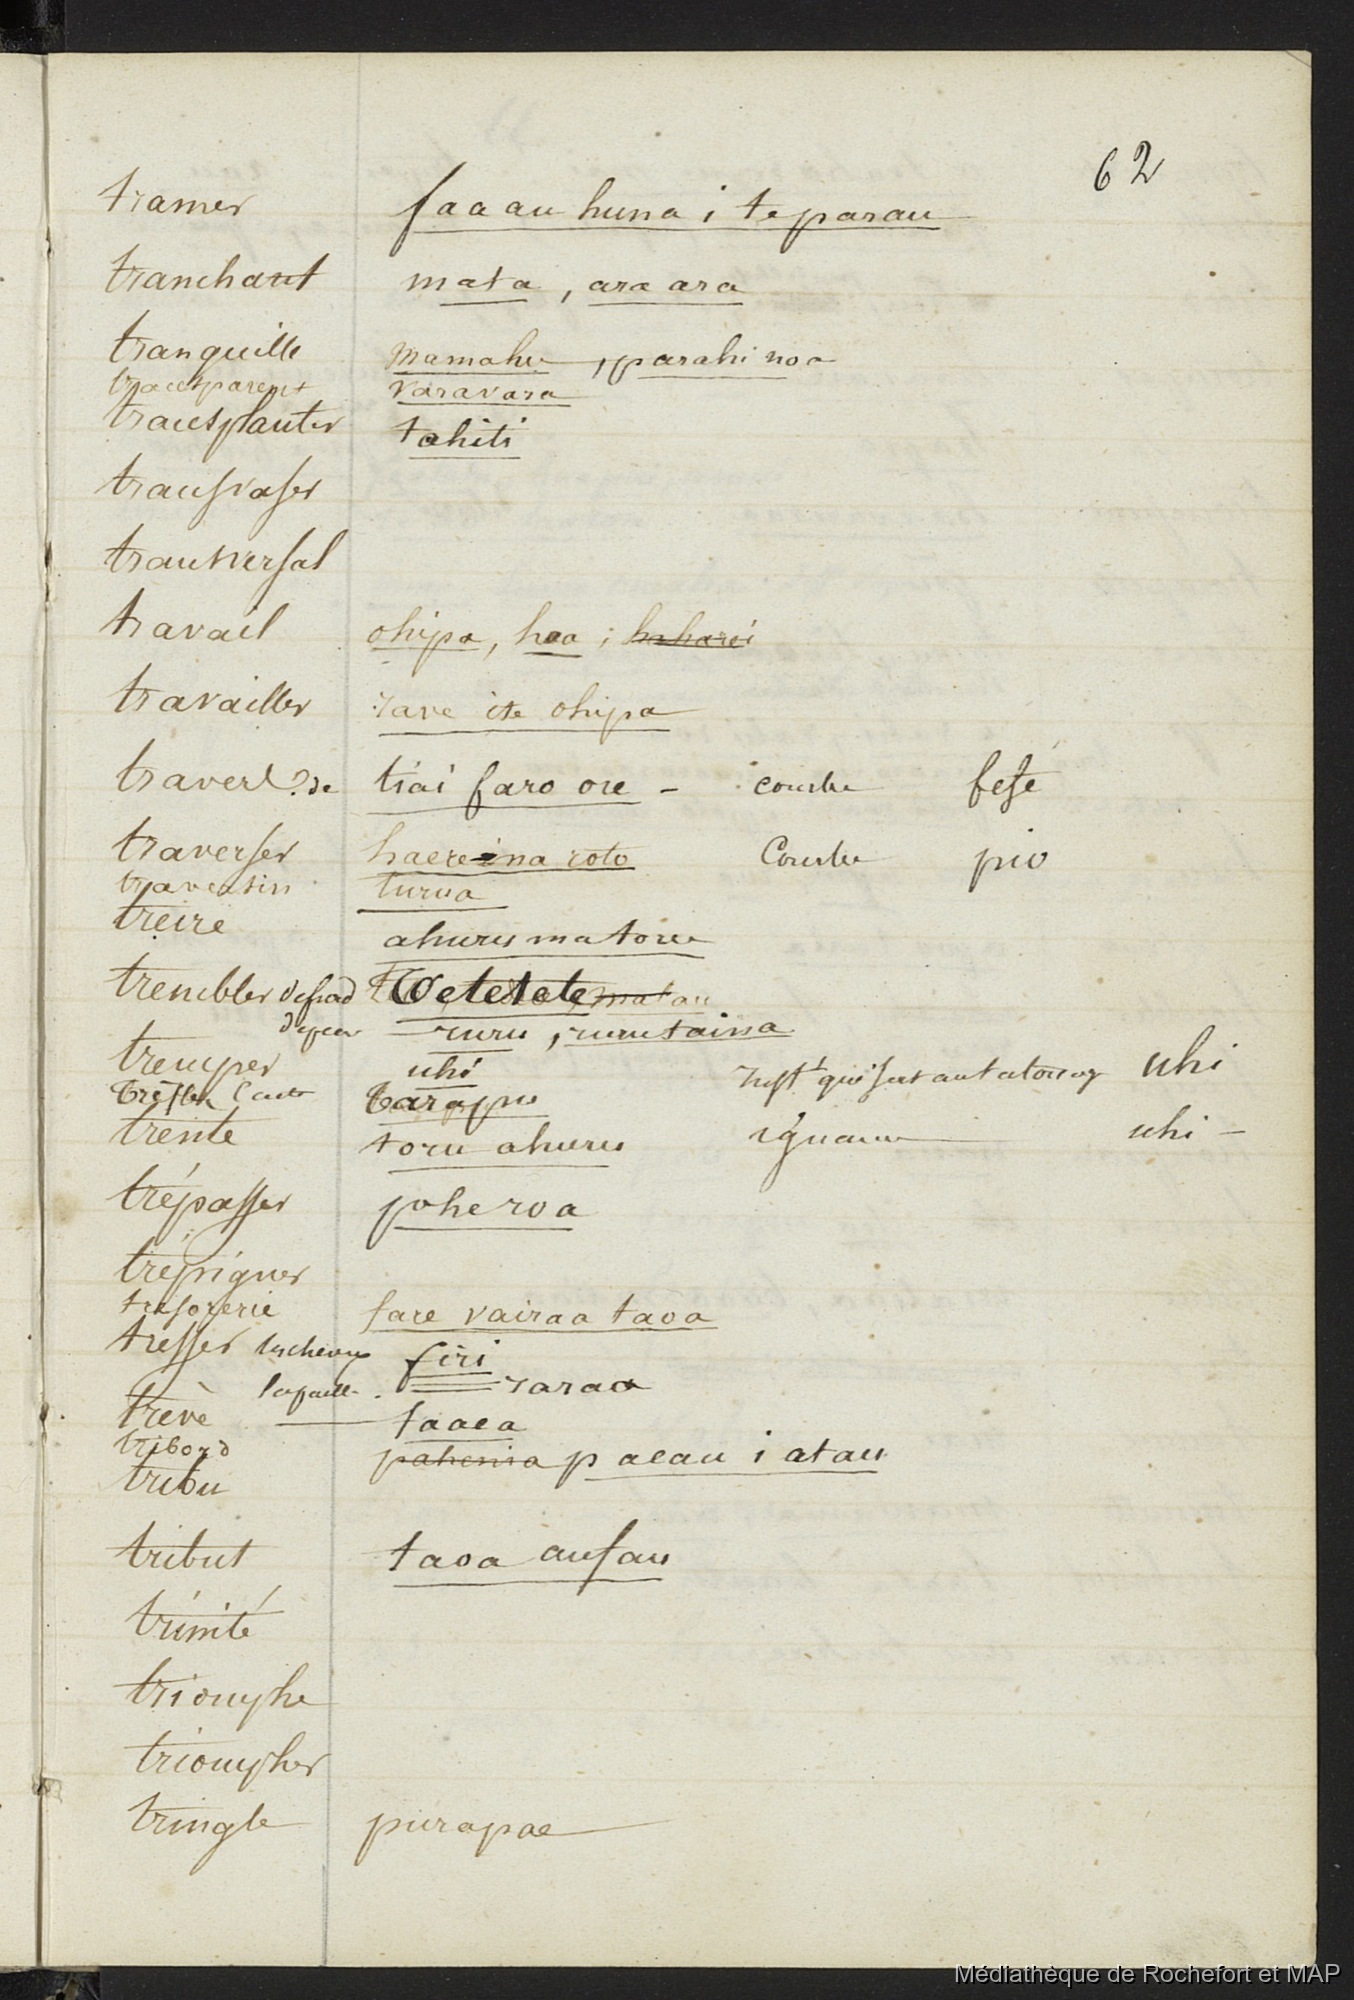 62
tramer faaau huna i te parau
tranchant mata, ara ara
tranquille mamahu, parahi noa
transparent varavara
transplanter tahiti
transvaser
transversal
travail ohipa, haa ;
travailler rave ite ohipa
travers? de tiai faro ore - courbe fefe
traverser haere na roto Courbe pio
traversin turua
treize ahuru ma toru
trembler de froid Oetetete matau
de peur ruru, ruru taina
tremper uhi uhi
trèfle Carte tarapu
trente toru ahuru igname uhi -
trépasser pohe roa
trépigner
trésorerie fare vairaa taoa
tresser les cheveux firi
la paille. raraa
trève faaea
tribord paheria paeau i atau
tribu
tribut taoa aufau
trinité
triomphe
triompher
tringle purapae
Médiathèque de Rochefort et MAP